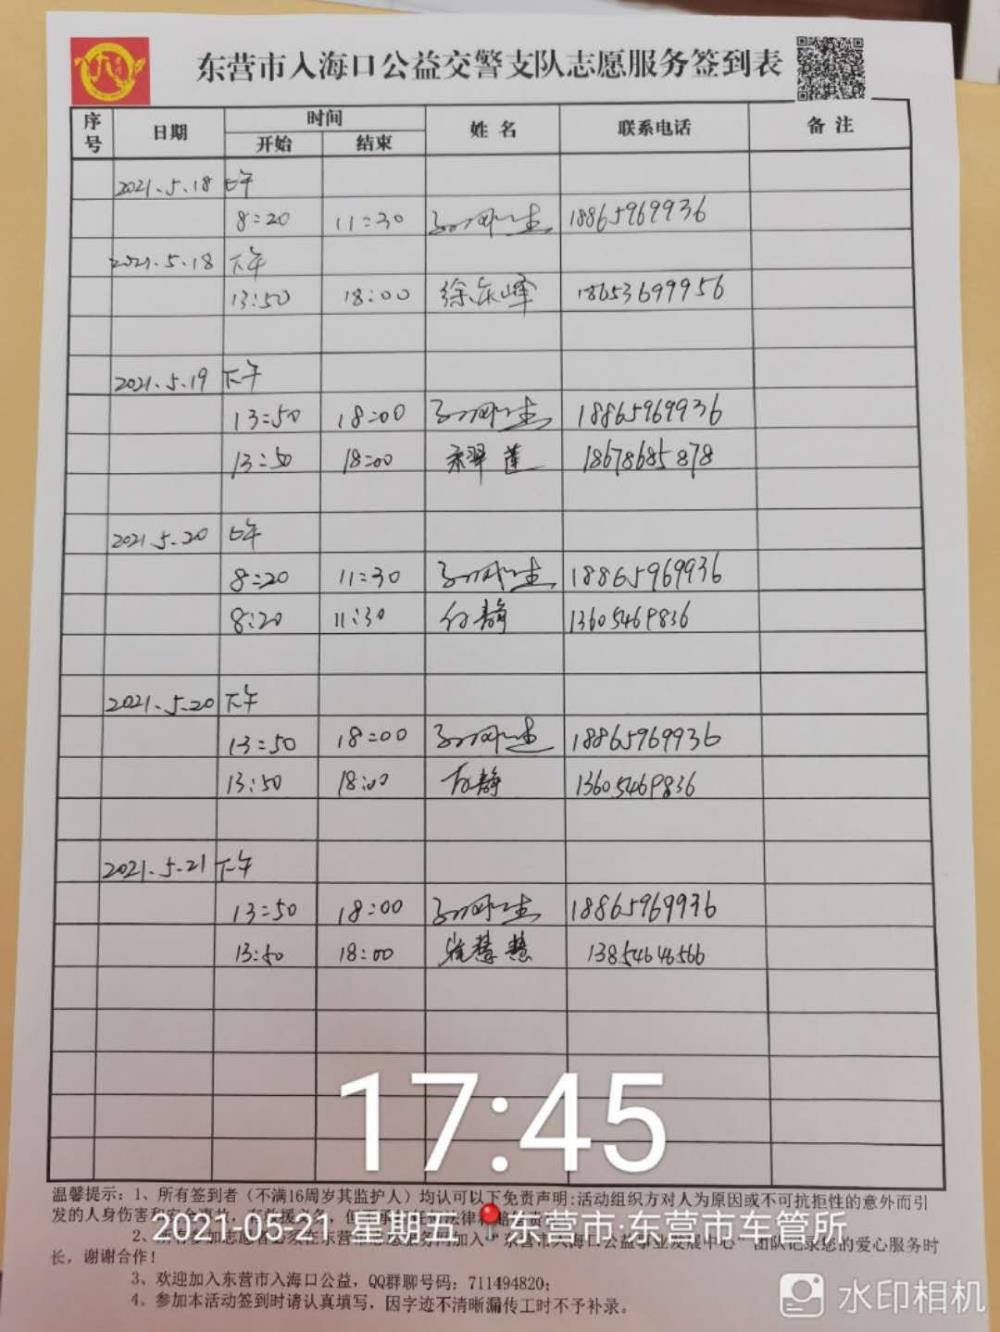 东营市入海口公益交警支队志愿服务签到表
序号 日期 时间 姓名 联系电话 备注
开始 结束
2021.5.18 上午
8:20 11:30 18865969936
2021.5.18 下午
13:50 18:00 徐东峰 18653699956
2021.5.19 下午
13:50 18:00 18865969936
13:50 18:00 18678685878
2021.5.20 上午
8:20 11:30 18865969936
8:20 11:30 付静 13605469836
2021.5.20 下午
13:50 18:00 18865969936
13:50 18:00 付静 13605469836
2021.5.21 下午
13:50 18:00 18865969936
13:50 18:00 慧慧 13854646566
17:45
温馨提示：1、所有签到者（不满16周岁其监护人）均认可以下免责声明：活动组织方对人为原因或不可抗拒性的意外而引
发的人身伤害和
2021-05-21 星期五 东营市·东营市车管所
加入“东营市入海口公益事业发展中心”团队记录您的爱心服务时
长，谢谢合作！
3、欢迎加入东营市入海口公益，QQ群聊号码：711494820；
4、参加本活动签到时请认真填写，因字迹不清晰漏传工时不予补录。
水印相机